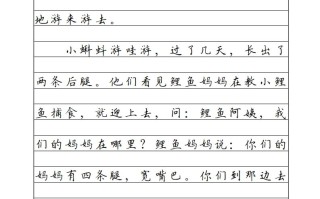 地游来游去。
小蝌蚪游哇游，过了几天，长出了
两条后腿。他们看见鲤鱼妈妈在教小鲤
鱼捕食，就迎上去，问：鲤鱼阿姨，我
们的妈妈在哪里？鲤鱼妈妈说：你们的
妈妈有四条腿，宽嘴巴。你们到那边去